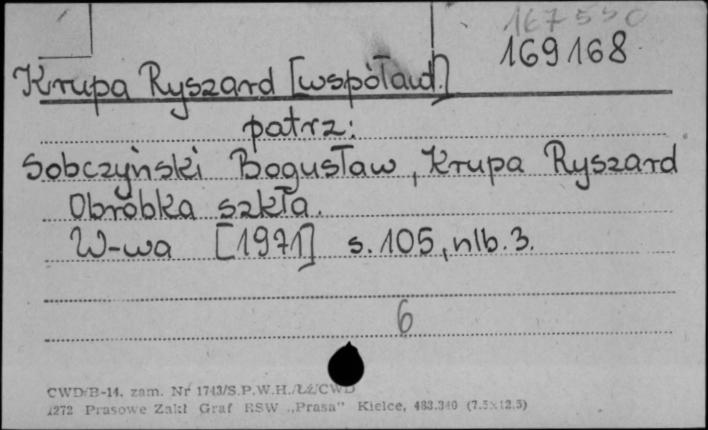 167550
169168
Krupa Ryszard [współaut.]
patrz:
Sobczyński Bogusław, Krupa Ryszard
Obróbka szkła.
W-wa [1971] s. 105, nlb. 3.
6
CWD/B-14. zam. Nr 1743/S.P.W.H./ŁŻ/CWD
1272 Prasowe Zakł Graf RSW „Prasa” Kielce, 483.340 (7.5x12.5)